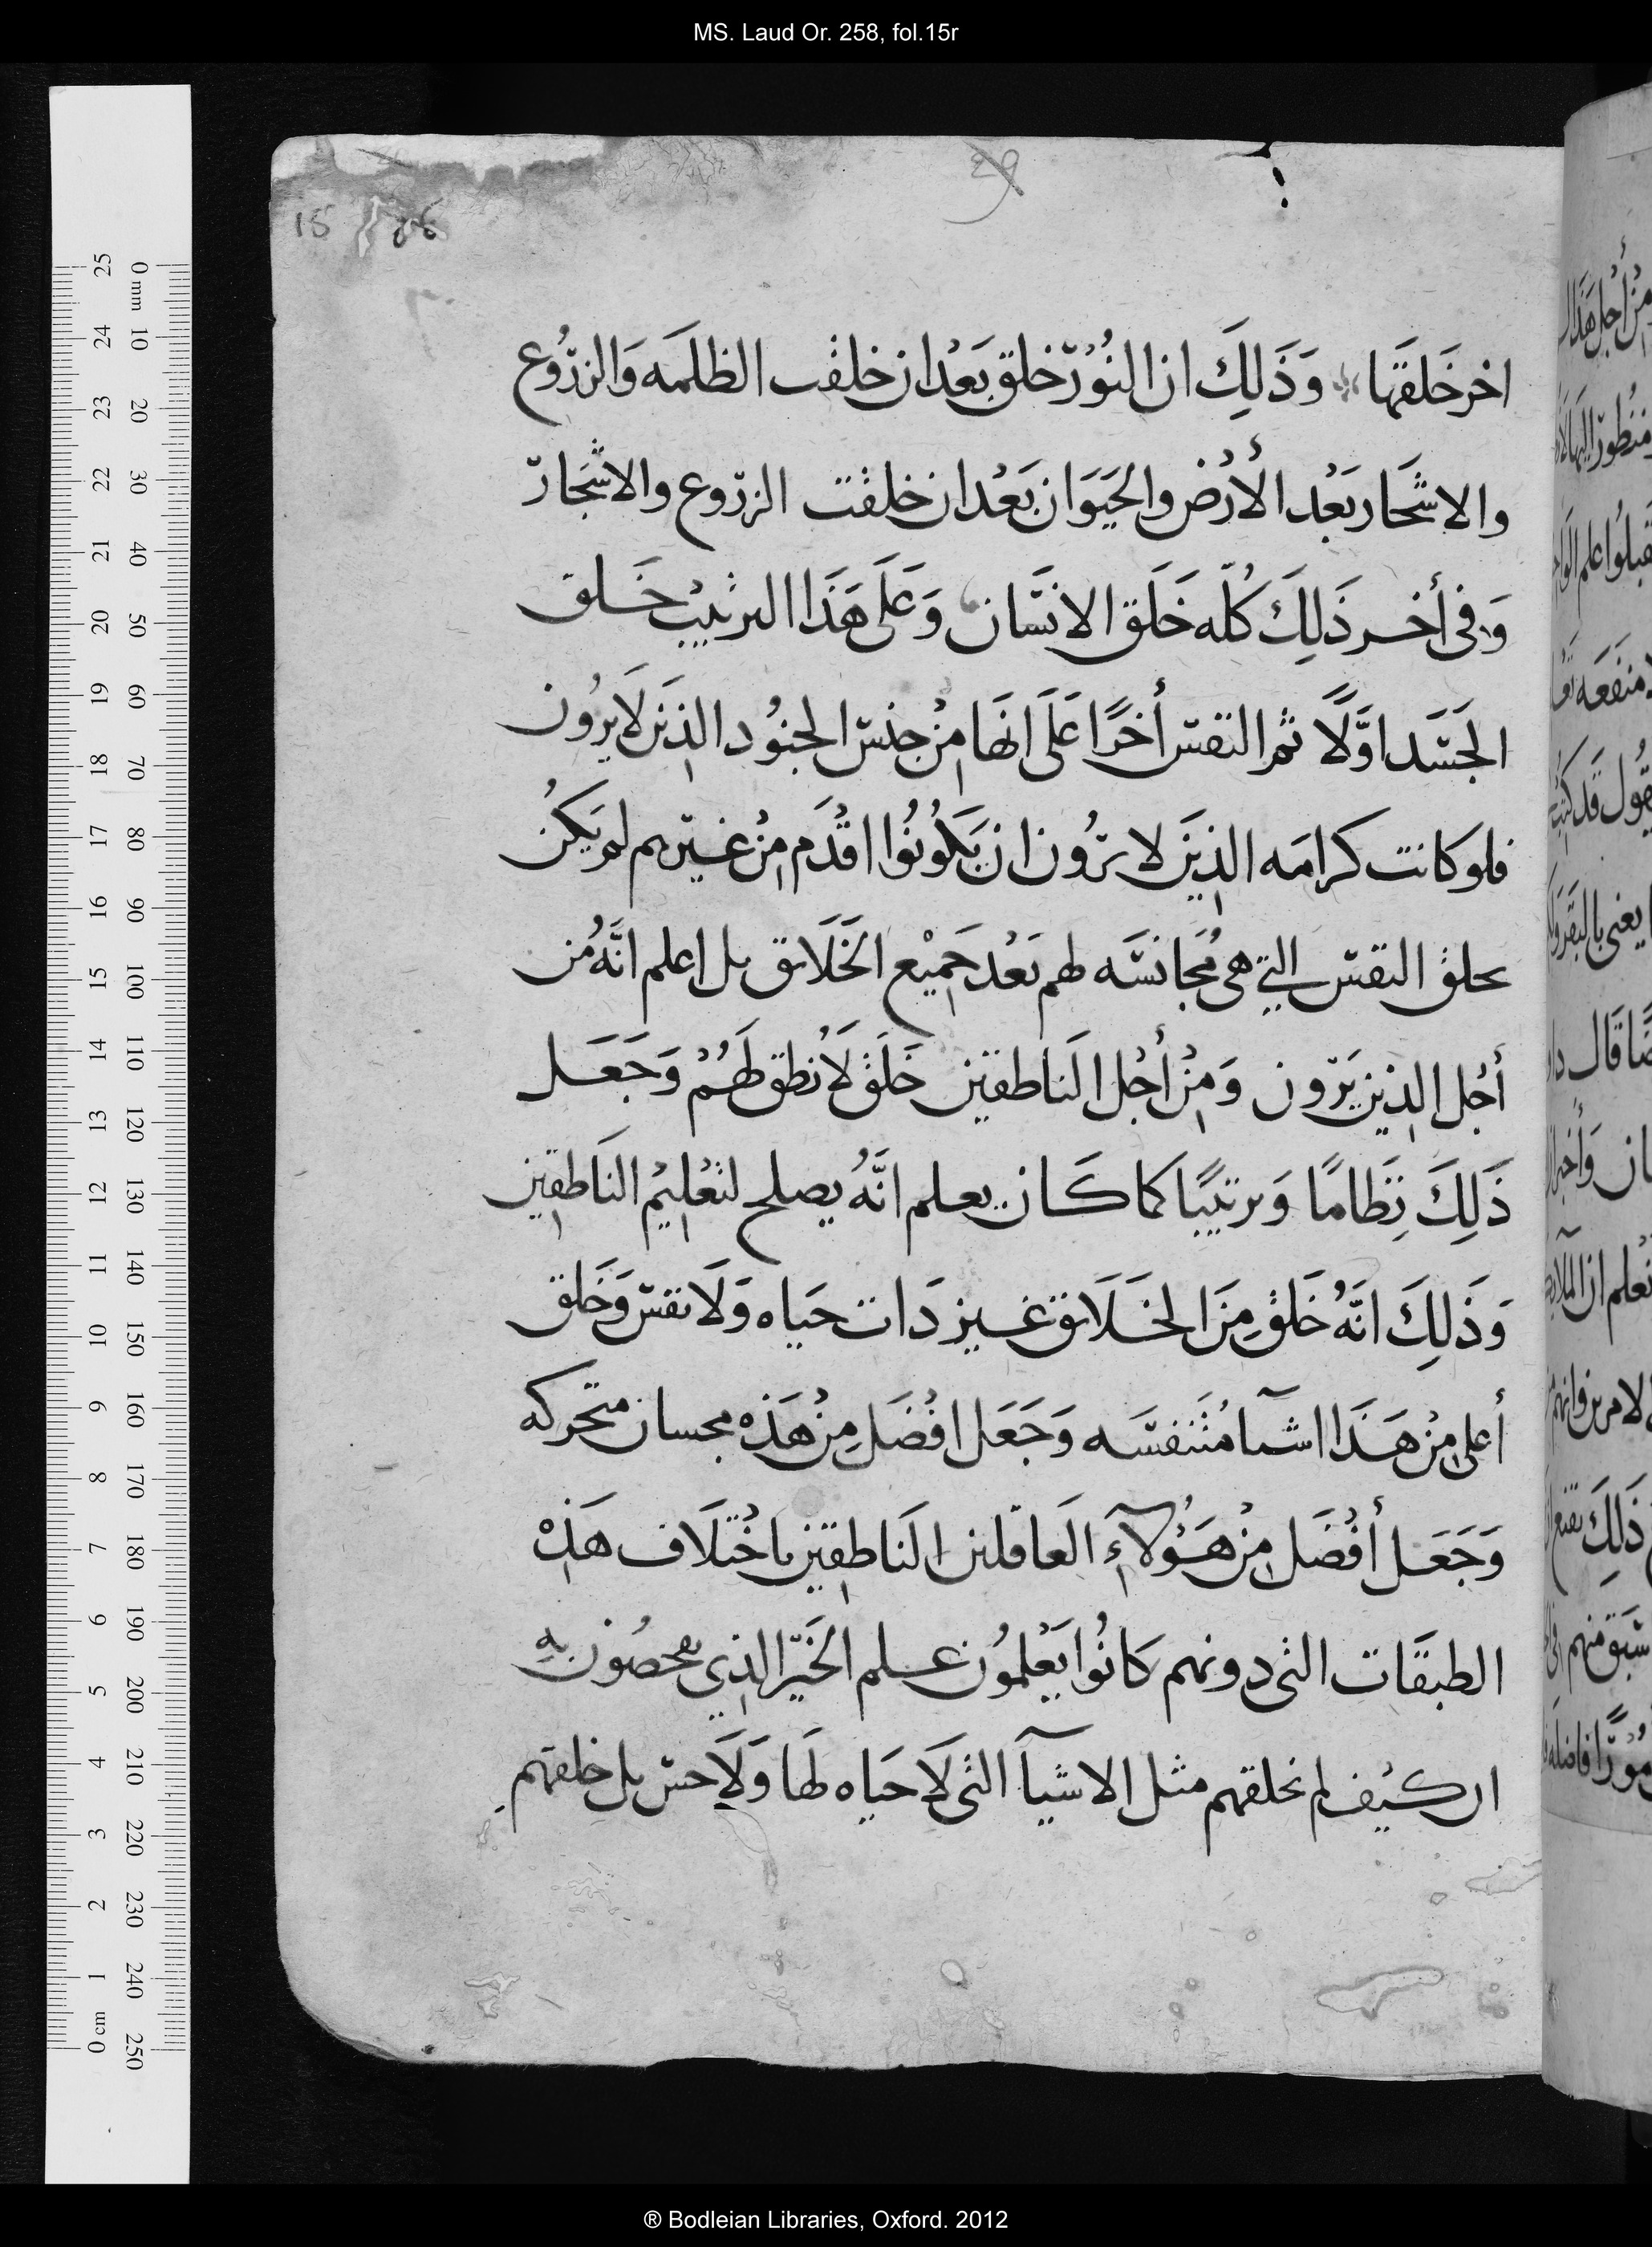 MS. Laud Or. 258, fol.15r
15
اخر خَلقَتها وَذَلِكَ ان النُوُرّ خلق بَعَدْ ان خلقت الظلَمَه وَالزرّوُع
والاشَجار بَعْد الأرْض والحَيَوَان بَعْد ان خلقت الزرّوع والاشَجارّ
وَفى أخر ذَلِكَ كُلّه خَلَق الانسَان وَعَلَى هَذَا الترتيب خَلق
الجَسَد اوَّلًا ثم النفس أخرًا عَلَى انهَا مِنْ جنس الجنُود الذِيَن لَا يرُون
فلو كانت كرامَه الذِيَن لا يرّون ان يَكوُنوُا اقْدَم مِنْ غيرّهم لم يَكنُ
يخلق النفس التي هى مُجَانسَه لهم بَعْد جَميْع الخَلَايق بل اعلم انَّهُ من
أجْل الذين يَرّون وَمِنْ أجْل الناطقين خَلَق لَا نُطق لَهُمْ وَجَعَل
ذَلِكَ نِظَامًا وَترتيبًا كما كَان يعلم انَّهُ يصلح لتعْليمْ الناطقِين
وَذَلِكَ انَّهُ خَلَق مِنَ الخَلَايق غير ذَات حيَاه وَلَا نفس وَخَلق
أعلى مِنْ هَذَا اشيآ مُتَنفسَه وَجَعَل افْضَل مِنْ هَذِهْ محسات متحركه
وَجَعَل أفْضَل مِنْ هَؤُلآءِ العَاقلين النَاطِقين باخْتلَاف هَذِهْ
الطبقَات التى دونهم كَانُوا يَعْلموُن علم الخَيّر الذِي يفحصُون بهِ
ان كيْف لم يخلقهم مثل الاشيآ التى لَا حيَاه لهَا وَلَا حس بل خلقهم
® Bodleian Libraries, Oxford. 2012